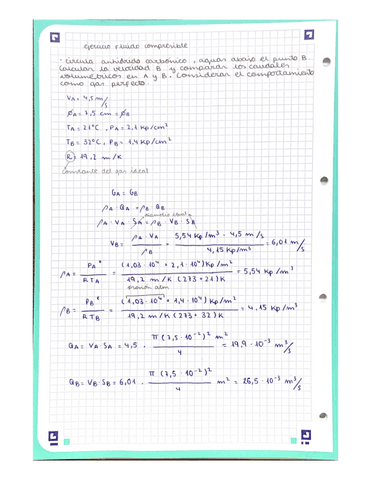 Ejercicio Fluido compresible
· Circula anhídrido carbónico, aguas abajo el punto B.
Calcular la velocidad B y comparar los caudales
volumétricos en A y B. Considerar el comportamiento
como gas perfecto.
VA = 4,5 m/s
ØA = 7,5 cm = ØB
TA = 21°C, PA = 2,1 kp/cm²
TB = 32°C, PB = 1,4 kp/cm²
R = 19,2 m/K
Constante del gas ideal
GA = GB
ρA · QA = ρB · QB
ρA · VA · SA = ρB · VB · SB
VB = ρA · VA / ρB = 5,54 kp/m³ · 4,5 m/s / 4,15 kp/m³ = 6,01 m/s
ρA = PA* / R TA = (1,03 · 10⁴ + 2,1 · 10⁴) kp/m² / 19,2 m/K (273 + 21) K = 5,54 kp/m³
presión atm
ρB = PB* / R TB = (1,03 · 10⁴ + 1,4 · 10⁴) kp/m² / 19,2 m/K (273 + 32) K = 4,15 kp/m³
QA = VA · SA = 4,5 · π (7,5 · 10⁻²)² m² / 4 = 19,9 · 10⁻³ m³/s
QB = VB · SB = 6,01 · π (7,5 · 10⁻²)² / 4 m² = 26,5 · 10⁻³ m³/s